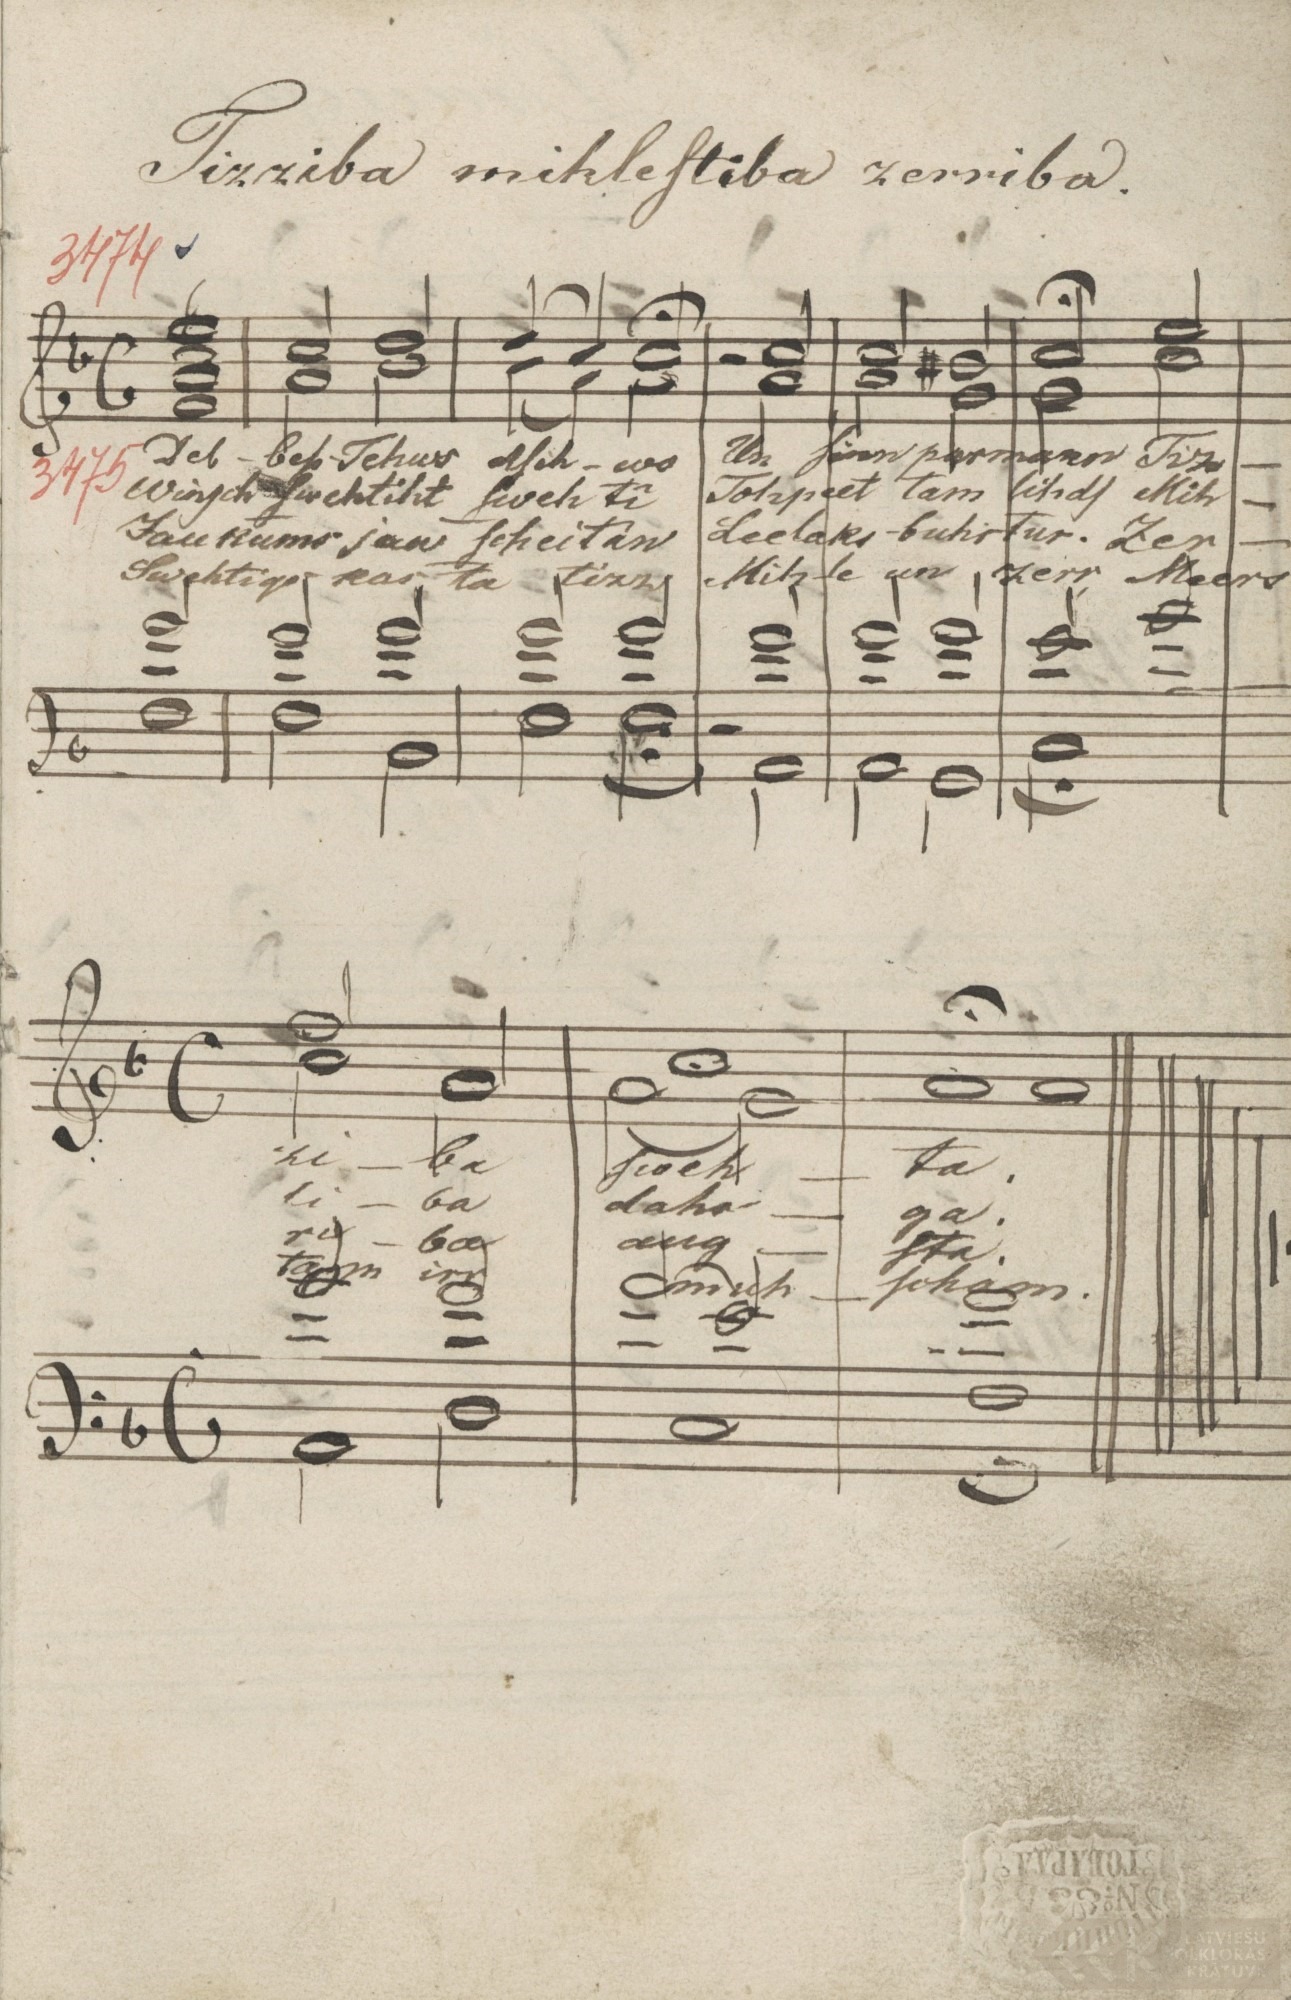 Tizziba mihlestiba zerriba.
3474
3475
Deb - bes - Tehws dsih - wo Un sinn parmann Tizz —
Winsch swehtiht sweh ti Tohpeet tam lihds Mih —
Jaukums jau scheitan Leelaks buhs tur. Zer —
Swehtigs kas ta tizz Mihle un zerr Meers
zi — ba sweh — ta.
li — ba dahr — ga.
ri — ba aug — sta.
tam irr muh — scham.
№ 3
LATVIEŠU
FOLKLORAS
KRĀTUVE